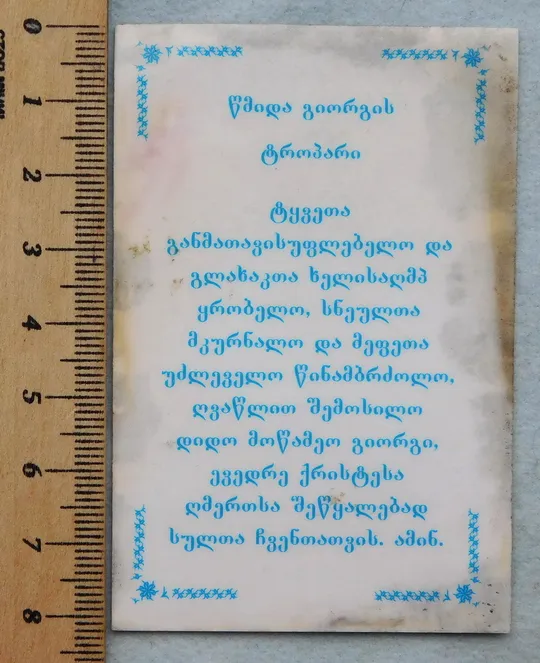 წმიდა გიორგის
ტროპარი
ტყვეთა
განმათავისუფლებელო და
გლახაკთა ხელისაღმპ
ყრობელო, სნეულთა
მკურნალო და მეფეთა
უძლეველო წინამბრძოლო,
ღვაწლით შემოსილო
დიდო მოწამეო გიორგი,
ევედრე ქრისტესა
ღმერთსა შეწყალებად
სულთა ჩვენთათვის. ამინ.
0
1
2
3
4
5
6
7
8